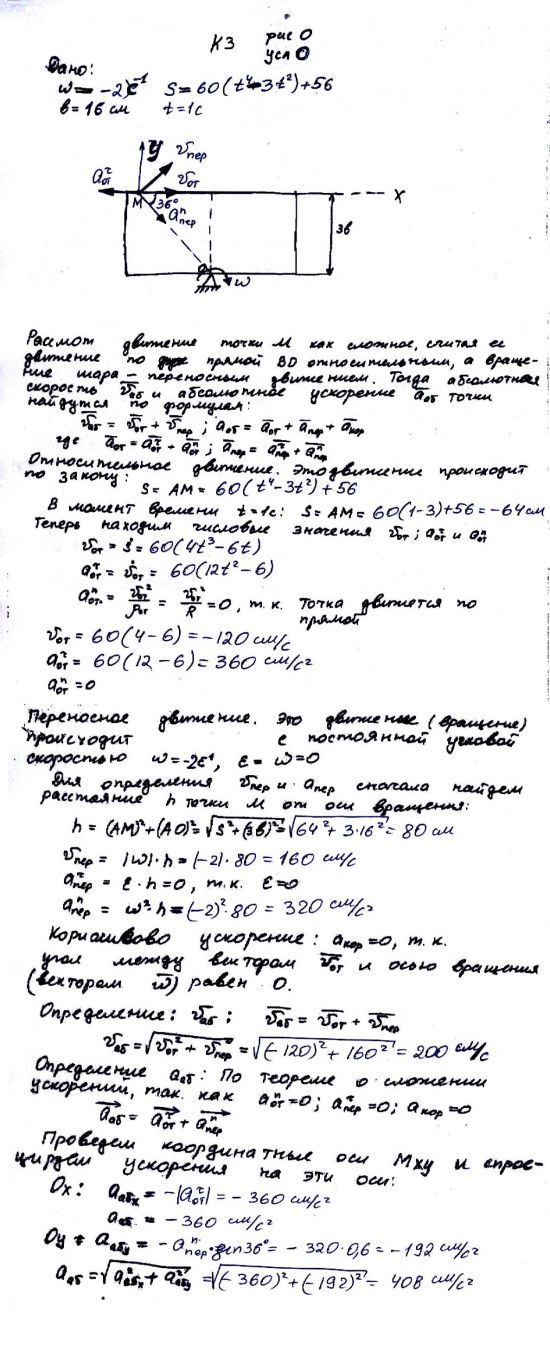 К3 рис 0
усл 0
Дано:
ω = -2 с⁻¹ S = 60(t⁴-3t²)+56
в = 16 см t = 1с
y
v̅пер
a̅от^τ
v̅от
M 36° x
a̅пер^n
3в
ω
Рассмот движение точки М как сложное, считая ее
движение по прямой BD относительным, а враще-
ние шара – переносным движением. Тогда абсолютная
скорость v̅аб и абсолютное ускорение a̅аб точки
найдутся по формулам:
v̅аб = v̅от + v̅пер ; a̅аб = a̅от + a̅пер + a̅кор
где a̅от = a̅от^τ + a̅от^n ; a̅пер = a̅пер^τ + a̅пер^n
Относительное движение. Это движение происходит
по закону:
S = AM = 60(t⁴-3t²)+56
В момент времени t=1с: S = AM = 60(1-3)+56 = -64 см
Теперь находим числовые значения v̅от ; a̅от^τ и a̅от^n
vот = ṡ = 60(4t³-6t)
aот^τ = v̇от = 60(12t²-6)
aот^n = vот²/ρот = vот²/R = 0, т.к. точка движется по
прямой
vот = 60(4-6) = -120 см/с
aот^τ = 60(12-6) = 360 см/с²
aот^n = 0
Переносное движение. Это движение (вращение)
происходит с постоянной угловой
скоростью ω=-2с⁻¹, ε = ω̇ = 0
Для определения v̅пер и a̅пер сначала найдем
расстояние h точки М от оси вращения:
h = (AM)²+(AO)² = √(S²+(3в)²) = √(64²+3·16²) = 80 см
vпер = |ω|·h = (-2)·80 = 160 см/с
aпер^τ = ε·h = 0, т.к. ε=0
aпер^n = ω²·h = (-2)²·80 = 320 см/с²
Кориолисово ускорение: aкор = 0, т.к.
угол между вектором v̅от и осью вращения
(вектором ω̅) равен 0.
Определение: v̅аб : v̅аб = v̅от + v̅пер
vаб = √(vот² + vпер²) = √((-120)² + 160²) = 200 см/с
Определение aаб : По теореме о сложении
ускорений, так как aот^n = 0; aпер^τ = 0; aкор = 0
a̅аб = a̅от^τ + a̅пер^n
Проведем координатные оси Мxy и спрое-
цируем ускорения на эти оси:
Ox: aабx = -|aот^τ| = -360 см/с²
aаб = -360 см/с²
Oy: aабy = -aпер^n·sin36° = -320·0,6 = -192 см/с²
aаб = √(aабx² + aабy²) = √((-360)² + (-192)²) = 408 см/с²